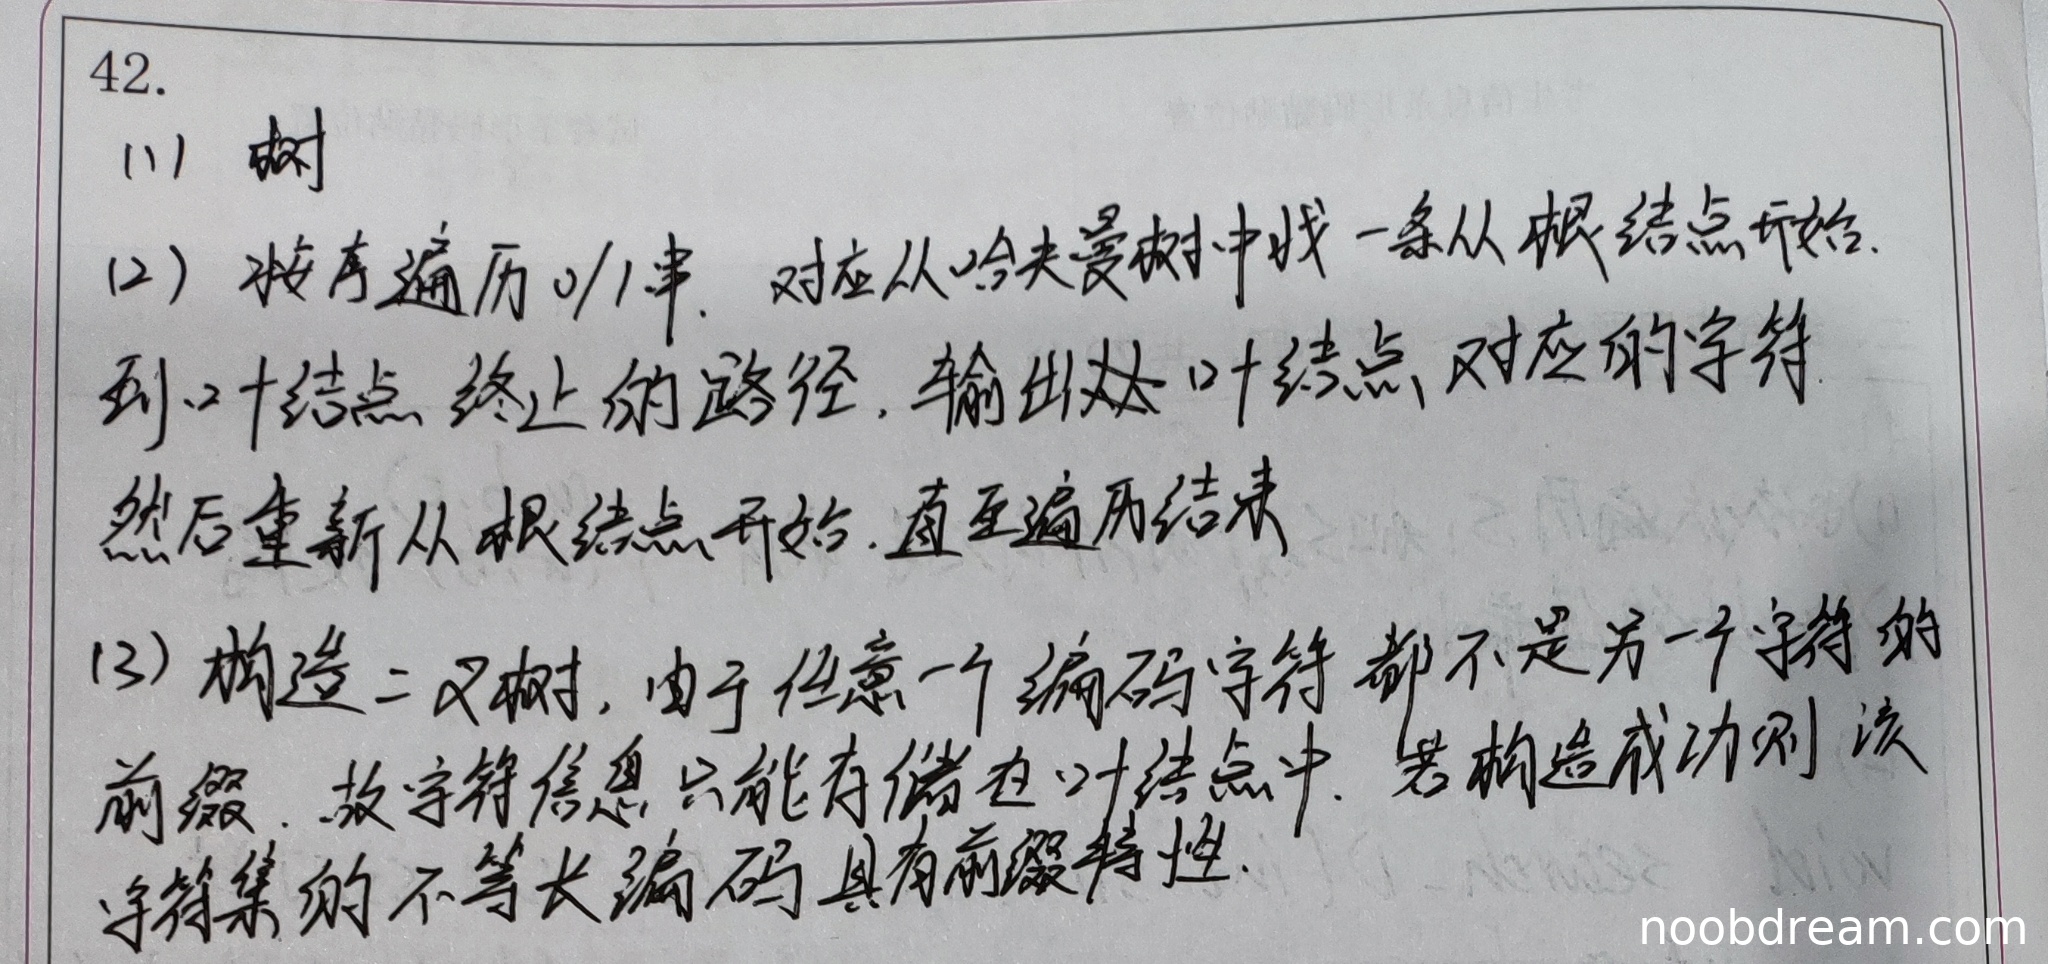 42.
(1) 树
(2) 按序遍历0/1串. 对应从哈夫曼树中找一条从根结点开始.
到叶结点终止的路径, 输出叶结点对应的字符
然后重新从根结点开始. 直至遍历结束
(3) 构造二叉树, 由于任意一个编码字符都不是另一个字符的
前缀. 故字符信息只能存储在叶结点中. 若构造成功则该
字符集的不等长编码具有前缀特性.
noobdream.com